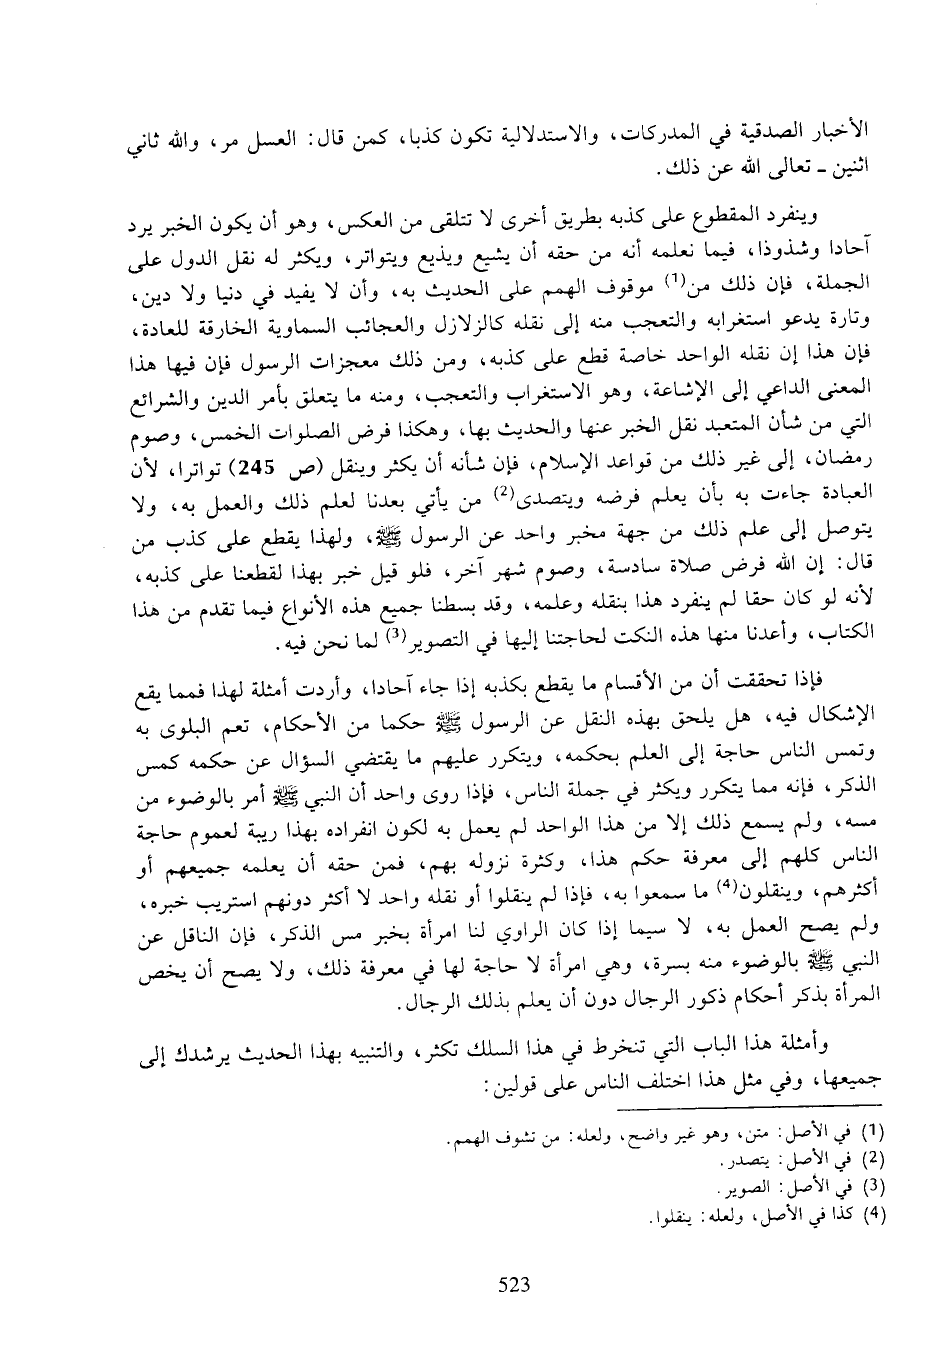 الأخبار الصدقية في المدركات، والاستدلالية تكون كذبا، كمن قال: العسل مر، والله ثاني
اثنين - تعالى الله عن ذلك.
وينفرد المقطوع على كذبه بطريق أخرى لا تتلقى من العكس، وهو أن يكون الخبر يرد
آحادا وشذوذا، فيما نعلمه أنه من حقه أن يشيع ويذيع ويتواتر، ويكثر له نقل الدول على
الجملة، فإن ذلك من(1) موقوف الهمم على الحديث به، وأن لا يفيد في دنيا ولا دين،
وتارة يدعو استغرابه والتعجب منه إلى نقله كالزلازل والعجائب السماوية الخارقة للعادة،
فإن هذا إن نقله الواحد خاصة قطع على كذبه، ومن ذلك معجزات الرسول فإن فيها هذا
المعنى الداعي إلى الإشاعة، وهو الاستغراب والتعجب، ومنه ما يتعلق بأمر الدين والشرائع
التي من شأن المتعبد نقل الخبر عنها والحديث بها، وهكذا فرض الصلوات الخمس، وصوم
رمضان، إلى غير ذلك من قواعد الإسلام، فإن شأنه أن يكثر وينقل (ص 245) تواترا، لأن
العبادة جاءت به بأن يعلم فرضه ويتصدى(2) من يأتي بعدنا لعلم ذلك والعمل به، ولا
يتوصل إلى علم ذلك من جهة مخبر واحد عن الرسول ﷺ، ولهذا يقطع على كذب من
قال: إن الله فرض صلاة سادسة، وصوم شهر آخر، فلو قيل خبر بهذا لقطعنا على كذبه،
لأنه لو كان حقا لم ينفرد هذا بنقله وعلمه، وقد بسطنا جميع هذه الأنواع فيما تقدم من هذا
الكتاب، وأعدنا منها هذه النكت لحاجتنا إليها في التصوير(3) لما نحن فيه.
فإذا تحققت أن من الأقسام ما يقطع بكذبه إذا جاء آحادا، وأردت أمثلة لهذا فمما يقع
الإشكال فيه، هل يلحق بهذه النقل عن الرسول ﷺ حكما من الأحكام، تعم البلوى به
وتمس الناس حاجة إلى العلم بحكمه، ويتكرر عليهم ما يقتضي السؤال عن حكمه كمس
الذكر، فإنه مما يتكرر ويكثر في جملة الناس، فإذا روى واحد أن النبي ﷺ أمر بالوضوء من
مسه، ولم يسمع ذلك إلا من هذا الواحد لم يعمل به لكون انفراده بهذا ريبة لعموم حاجة
الناس كلهم إلى معرفة حكم هذا، وكثرة نزوله بهم، فمن حقه أن يعلمه جميعهم أو
أكثرهم، وينقلون(4) ما سمعوا به، فإذا لم ينقلوا أو نقله واحد لا أكثر دونهم استريب خبره،
ولم يصح العمل به، لا سيما إذا كان الراوي لنا امرأة بخبر مس الذكر، فإن الناقل عن
النبي ﷺ بالوضوء منه بسرة، وهي امرأة لا حاجة لها في معرفة ذلك، ولا يصح أن يخص
المرأة بذكر أحكام ذكور الرجال دون أن يعلم بذلك الرجال.
وأمثلة هذا الباب التي تنخرط في هذا السلك تكثر، والتنبيه بهذا الحديث يرشدك إلى
جميعها، وفي مثل هذا اختلف الناس على قولين:
(1) في الأصل: متن، وهو غير واضح، ولعله: من تشوف الهمم.
(2) في الأصل: يتصدر.
(3) في الأصل: الصوير.
(4) كذا في الأصل، ولعله: ينقلوا.
523